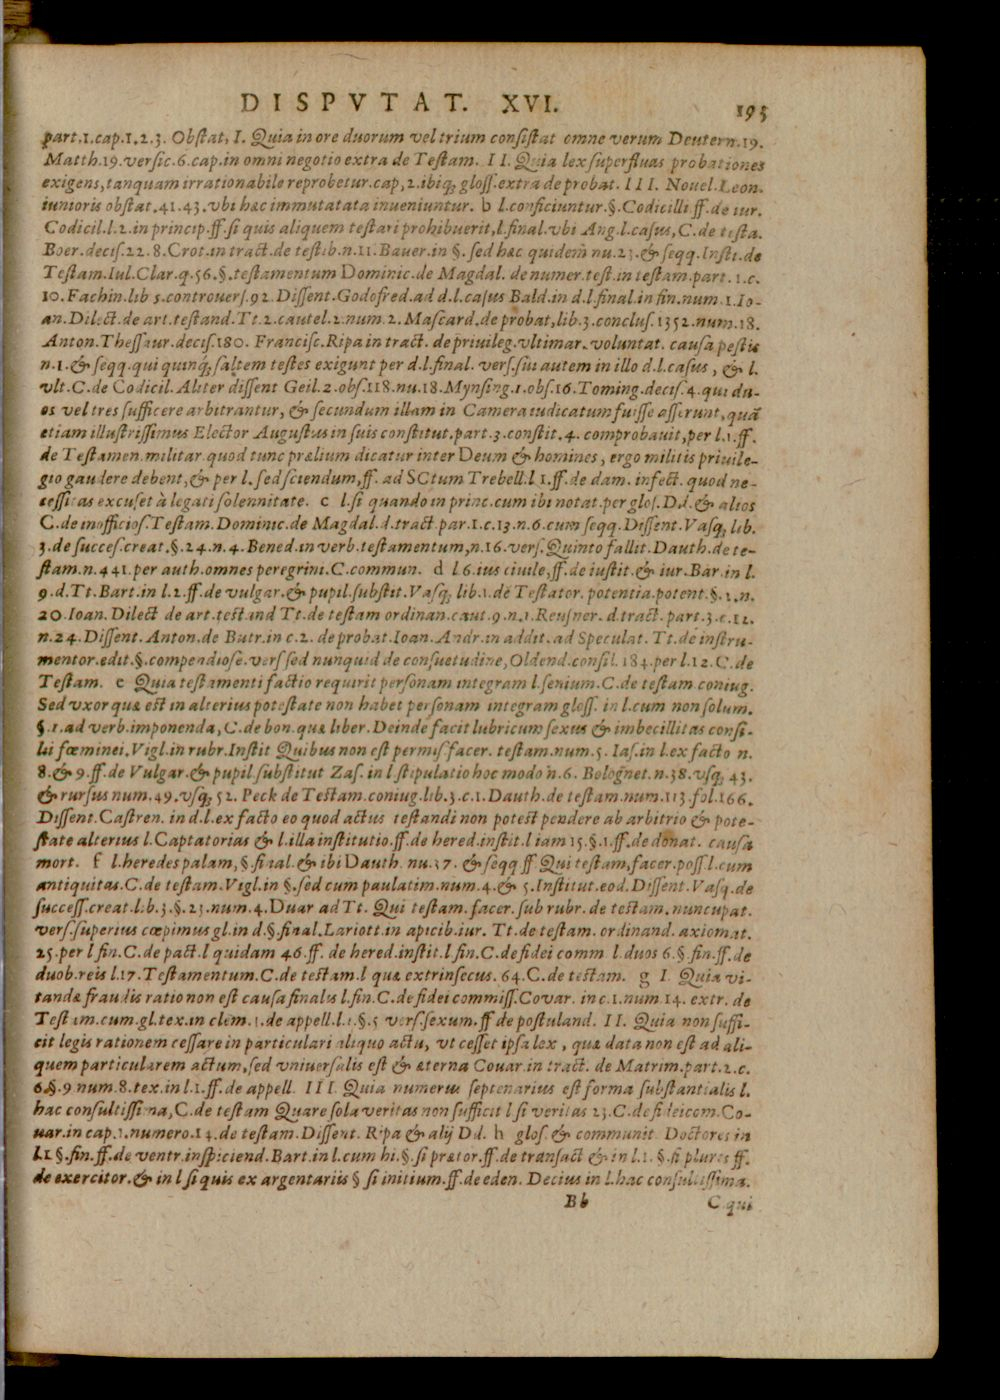 DISPVTAT. XVI. 195
part.1.cap.1.2.3. Obstat, I. Quia in ore duorum vel trium consistat omne verum Deutern.19.
Matth.19.versic.6.cap.in omni negotio extra de Testam. II. Quia lex superfluas probationes
exigens,tanquam irrationabile reprobetur.cap,2.ibiq; gloss.extra de probat. III. Nouel.Leon.
iunioris obstat.41.43.vbi hæc immutatata inueniuntur. b l.conficiuntur.§.Codicilli ff.de iur.
Codicil.l.2.in princip.ff.si quis aliquem testari prohibuerit,l.final.vbi Ang.l.casus,C.de testa.
Boer.decis.22.8.Crot.in tract.de testib.n.11.Bauer.in §.sed hæc quidem nu.23.& seqq.Insti.de
Testam.Iul.Clar.q.56.§.testamentum Dominic.de Magdal. de numer.test.in testam.part.1.c.
10.Fachin.lib 5.controuers.92.Dissent.Godofred.ad d.l.casus Bald.in d.l.final.in fin.num.1.Io-
an.Dilect.de art.testand.Tt.2.cautel.2.num.2.Mascard.de probat,lib.3.conclus.1352.num.18.
Anton.Thessaur.decis.180. Francisc.Ripa in tract. de priuileg.vltimar.voluntat. causa pestis
n.1.& seqq.qui quinq; saltem testes exigunt per d.l.final. vers.sin autem in illo d.l.casus, & l.
vlt.C.de Codicil. Aliter dissent Geil.2.obs.118.nu.18.Mynsing.1.obs.16.Toming.decis.4.qui du-
os vel tres sufficere arbitrantur, & secundum illam in Camera iudicatum fuisse asserunt,quã
etiam illustrissimus Elector Augustus in suis constitut.part.3.constit.4. comprobauit,per l.1.ff.
de Testamen.militar.quod tunc prælium dicatur inter Deum & homines, ergo militis priuile-
gio gaudere debent,& per l.sed sciendum,ff. ad SCtum Trebell:l 1.ff.de dam. infect. quod ne-
cessitas excuset à legati solennitate. c l.si quando in princ.cum ibi notat.per glos.D.d.& alios
C.de inofficios.Testam.Dominic.de Magdal.d.tract.par.1.c.13.n.6.cum seqq.Dissent.Vasq; lib.
3.de succes.creat.§.24.n.4.Bened.in verb.testamentum,n.16.vers.Quinto fallit.Dauth.de te-
stam.n.441.per auth.omnes peregrini.C.commun. d l 6.ius ciuile,ff.de iustit.& iur.Bar.in l.
9.d.Tt.Bart.in l.2.ff.de vulgar.& pupil.substit.Vasq; lib.1.de Testator.potentia.potent.§.1.n.
20.Ioan.Dilect de art.testand Tt.de testam ordinan.caut.9.n.1.Reusner.d.tract.part.3.c.12.
n.24.Dissent.Anton.de Butr.in c.2.de probat.Ioan.Andr.in addit.ad Speculat. Tt.de instru-
mentor.edit.§.compendiose.vers sed nunquid de consuetudine,Oldend.consil.184.per l.12.C.de
Testam. e Quia testamenti factio requirit personam integram l.senium.C.de testam coniug.
Sed vxor quæ est in alterius potestate non habet personam integram gloss. in l.cum non solum.
§.1.ad verb.imponenda,C.de bon.quæ liber.Deinde facit lubricum sexus & imbecillitas consi-
lii fœminei.Vigl.in rubr.Instit Quibus non est permis.facer. testam.num.5.Ias.in l.ex facto n.
8.& 9.ff.de Vulgar.& pupil.substitut Zas.in l stipulatio hoc modo n.6.Bolognet.n.38.vsq; 43.
& rursus num.49.vsq; 52. Peck de Testam.coniug.lib.3.c.1.Dauth.de testam.num.113.fol.166.
Dissent.Castren. in d.l.ex facto eo quod actus testandi non potest pendere ab arbitrio & pote-
state alterius l.Captatorias & l.illa institutio.ff.de hered.instit.l iam 15.§.1.ff.de donat. causa
mort. f l.heredes palam,§.final.& ibi Dauth. nu.37. & seqq ff.Qui testam,facer.poss.l.cum
antiquitas.C.de testam.Vigl.in §.sed cum paulatim.num.4.& 5.Institut.eod.Dissent.Vasq.de
success.creat.lib.3.§.23.num.4.Duar ad Tt. Qui testam.facer.sub rubr. de testam.nuncupat.
vers.superius cœpimus gl.in d.§.final.Lariott.in apicib.iur. Tt.de testam.ordinand.axiomat.
25.per l fin.C.de pact.l quidam 46.ff. de hered.instit.l fin.C.de fidei comm l.duos 6.§.fin.ff.de
duob.reis l.17.Testamentum.C.de testam.l quæ extrinsecus.64.C.de testam. g I. Quia vi-
tandæ fraudis ratio non est causa finalis l.fin.C.de fidei commiss.Covar. in c.1.num.14. extr.de
Testam.cum.gl.tex.in clem.1.de appell.l.1.§.5 vers.sexum.ff de postuland. II. Quia non suffi-
cit legis rationem cessare in particulari aliquo actu, vt cesset ipsa lex, quæ data non est ad ali-
quem particularem actum,sed vniuersalis est & æterna Couar.in tract. de Matrim.part.2.c.
6.§.9 num.8.tex.in l.1.ff.de appell. III. Quia numerus septenarius est forma substantialis l.
hac consultissima,C.de testam Quare sola veritas non sufficit l si veritas 23.C.de fideicom.Co-
uar.in cap.1.numero.14.de testam.Dissent. Ripa & alij Dd. h glos.& communit Doctores in
l.1 §.fin.ff.de ventr.inspiciend.Bart.in l.cum hi.§.si prætor.ff.de transact & in l.1. §.si plures ff.
de exercitor.& in l si quis ex argentariis § si initium.ff.de eden. Decius in l.hac consultissima.
Bb C.qui